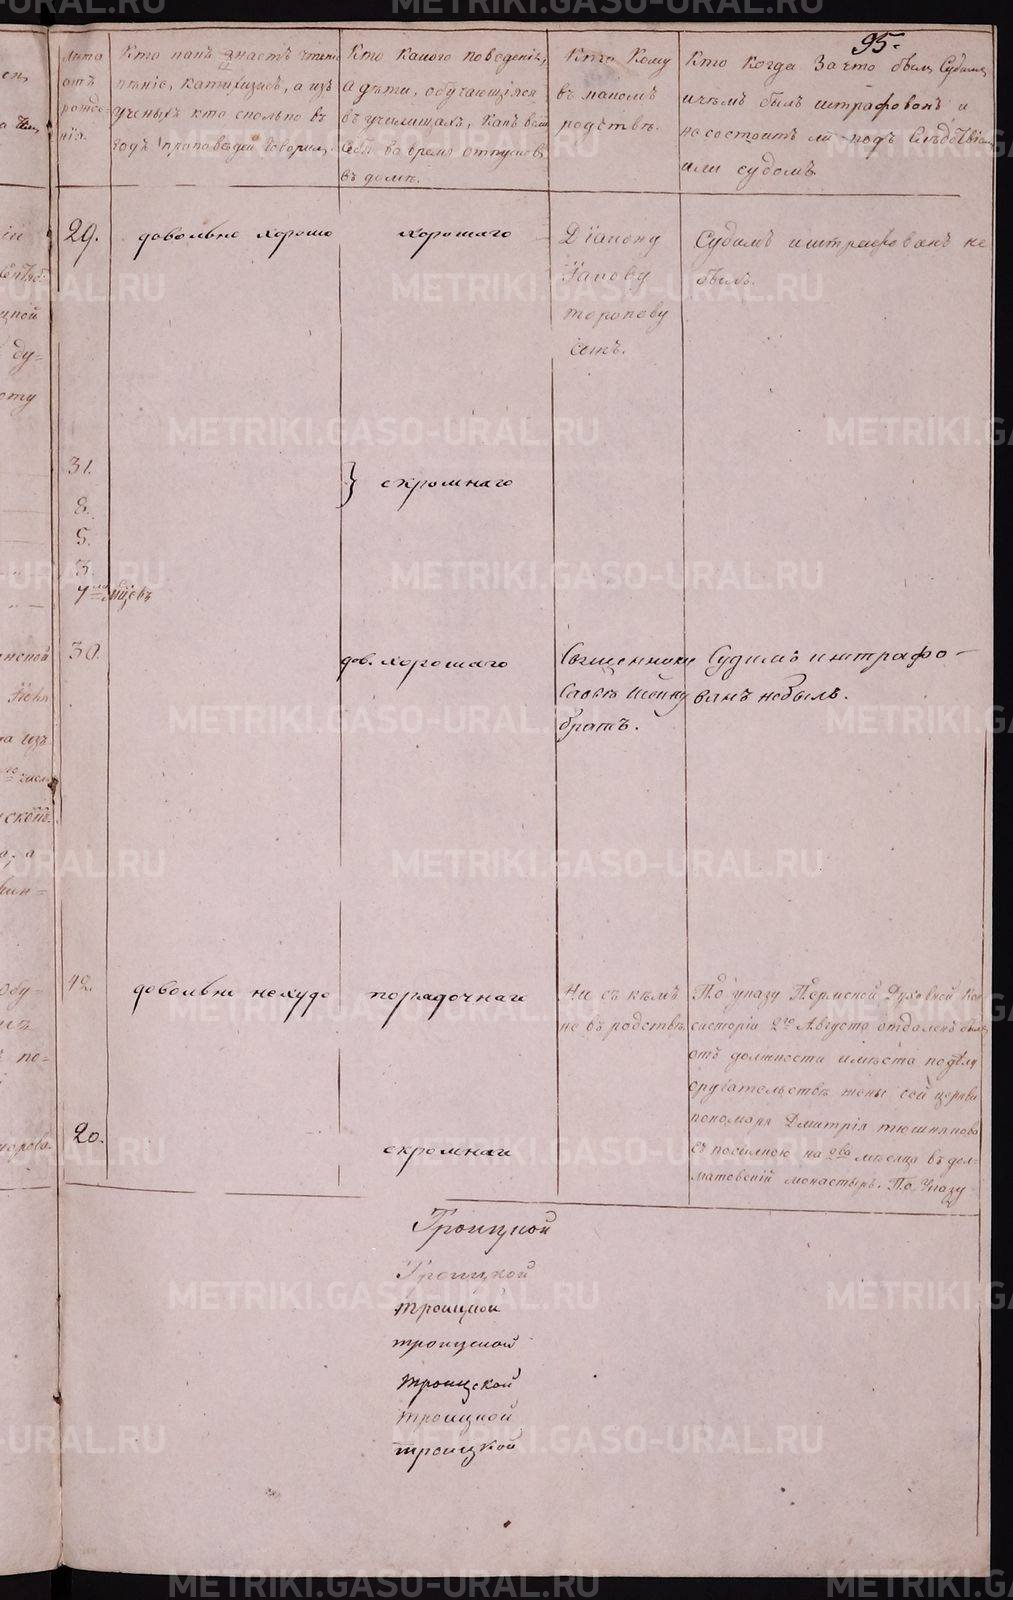 95.
Лѣта
отъ
рожде-
нія.
Кто какъ знаетъ чтеніе
пѣніе, катихизисъ, а изъ
ученыхъ кто сколько въ
годъ проповѣдей говорилъ.
Кто какого поведенія,
а дѣти, обучающіяся
въ училищахъ, какъ вели
себя во время отпусковъ
въ домъ.
Кто кому
въ какомъ
родствѣ.
Кто когда за что былъ судимъ
и чѣмъ былъ штрафованъ и
не состоитъ ли подъ слѣдствіемъ
или судомъ
29.
довольно хорошо
хорошаго
Діакону
Іакову
торопову
сынъ.
Судимъ и штрафованъ не
былъ.
31.
скромнаго
8.
5.
3
мцевъ
30.
дов. хорошаго
Священнику
братъ.
Судимъ и штрафо-
ванъ небылъ.
42.
довольно нехудо
порядочнаго
Ни съ кѣмъ
не въ родствѣ.
По указу Пермской Духовной Кон
систоріи 2го Августа отдаленъ былъ
отъ должности и мѣста по дѣлу
оругательствѣ жены сей церкви
пономаря Дмитрія тюшнякова
съ посылкою на два мѣсяца въ дол-
матовскій монастырь. По Указу
20.
скромнаго
Троицкой
Троицкой
троицкой
троицкой
троицской
троицкой
троицкой
METRIKI.GASO-URAL.RU